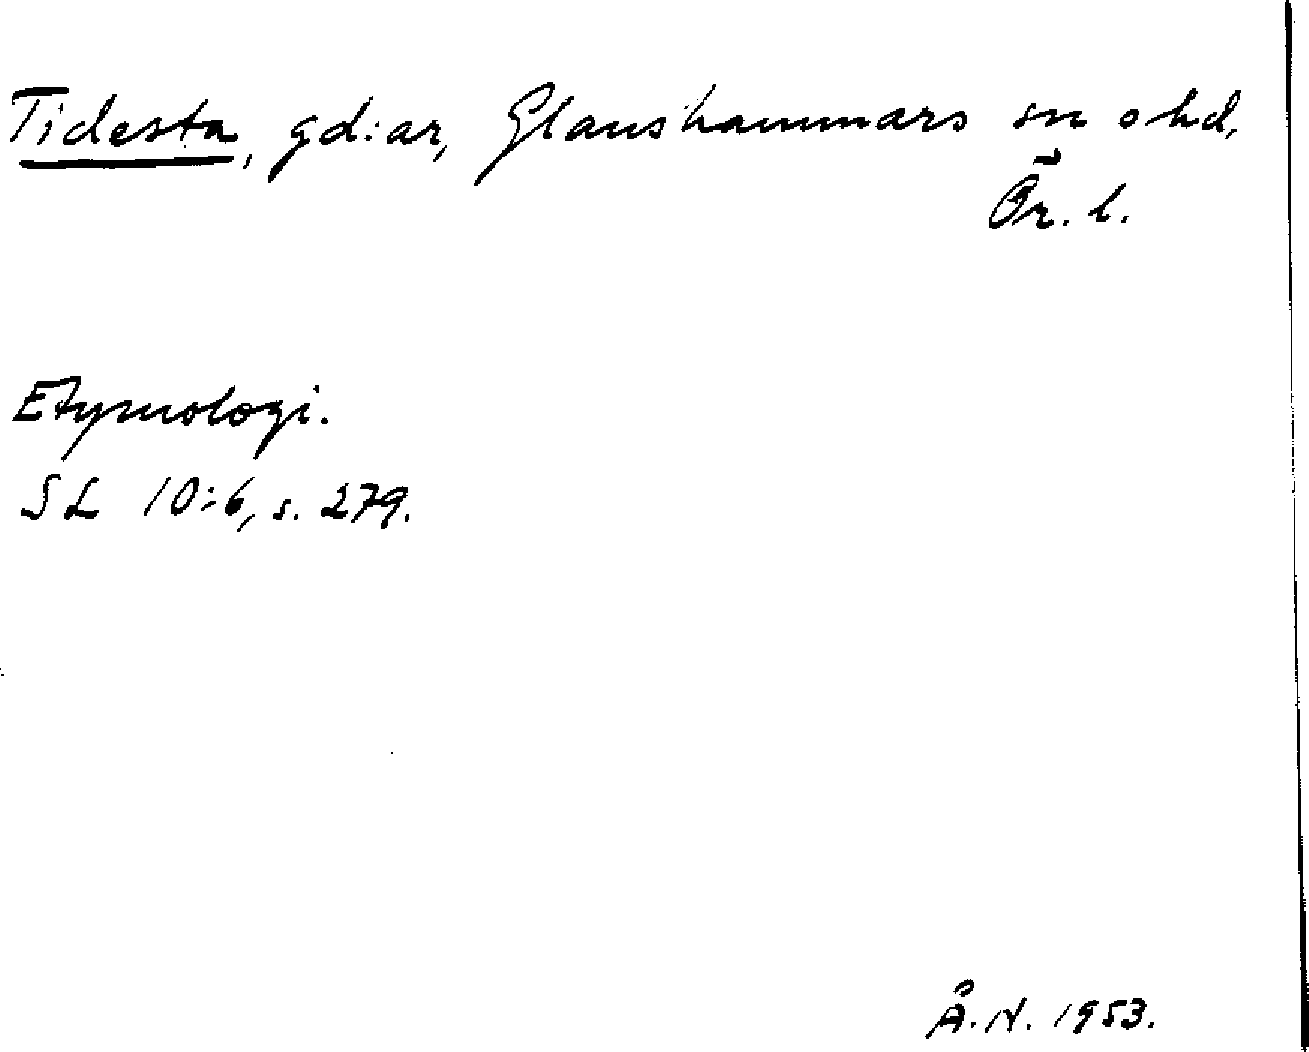 Tidesta, gd:ar, Glanshammars sn o hd,
Ör. l.
Etymologi.
SL 10:6, s. 279.
Å. N. 1953.